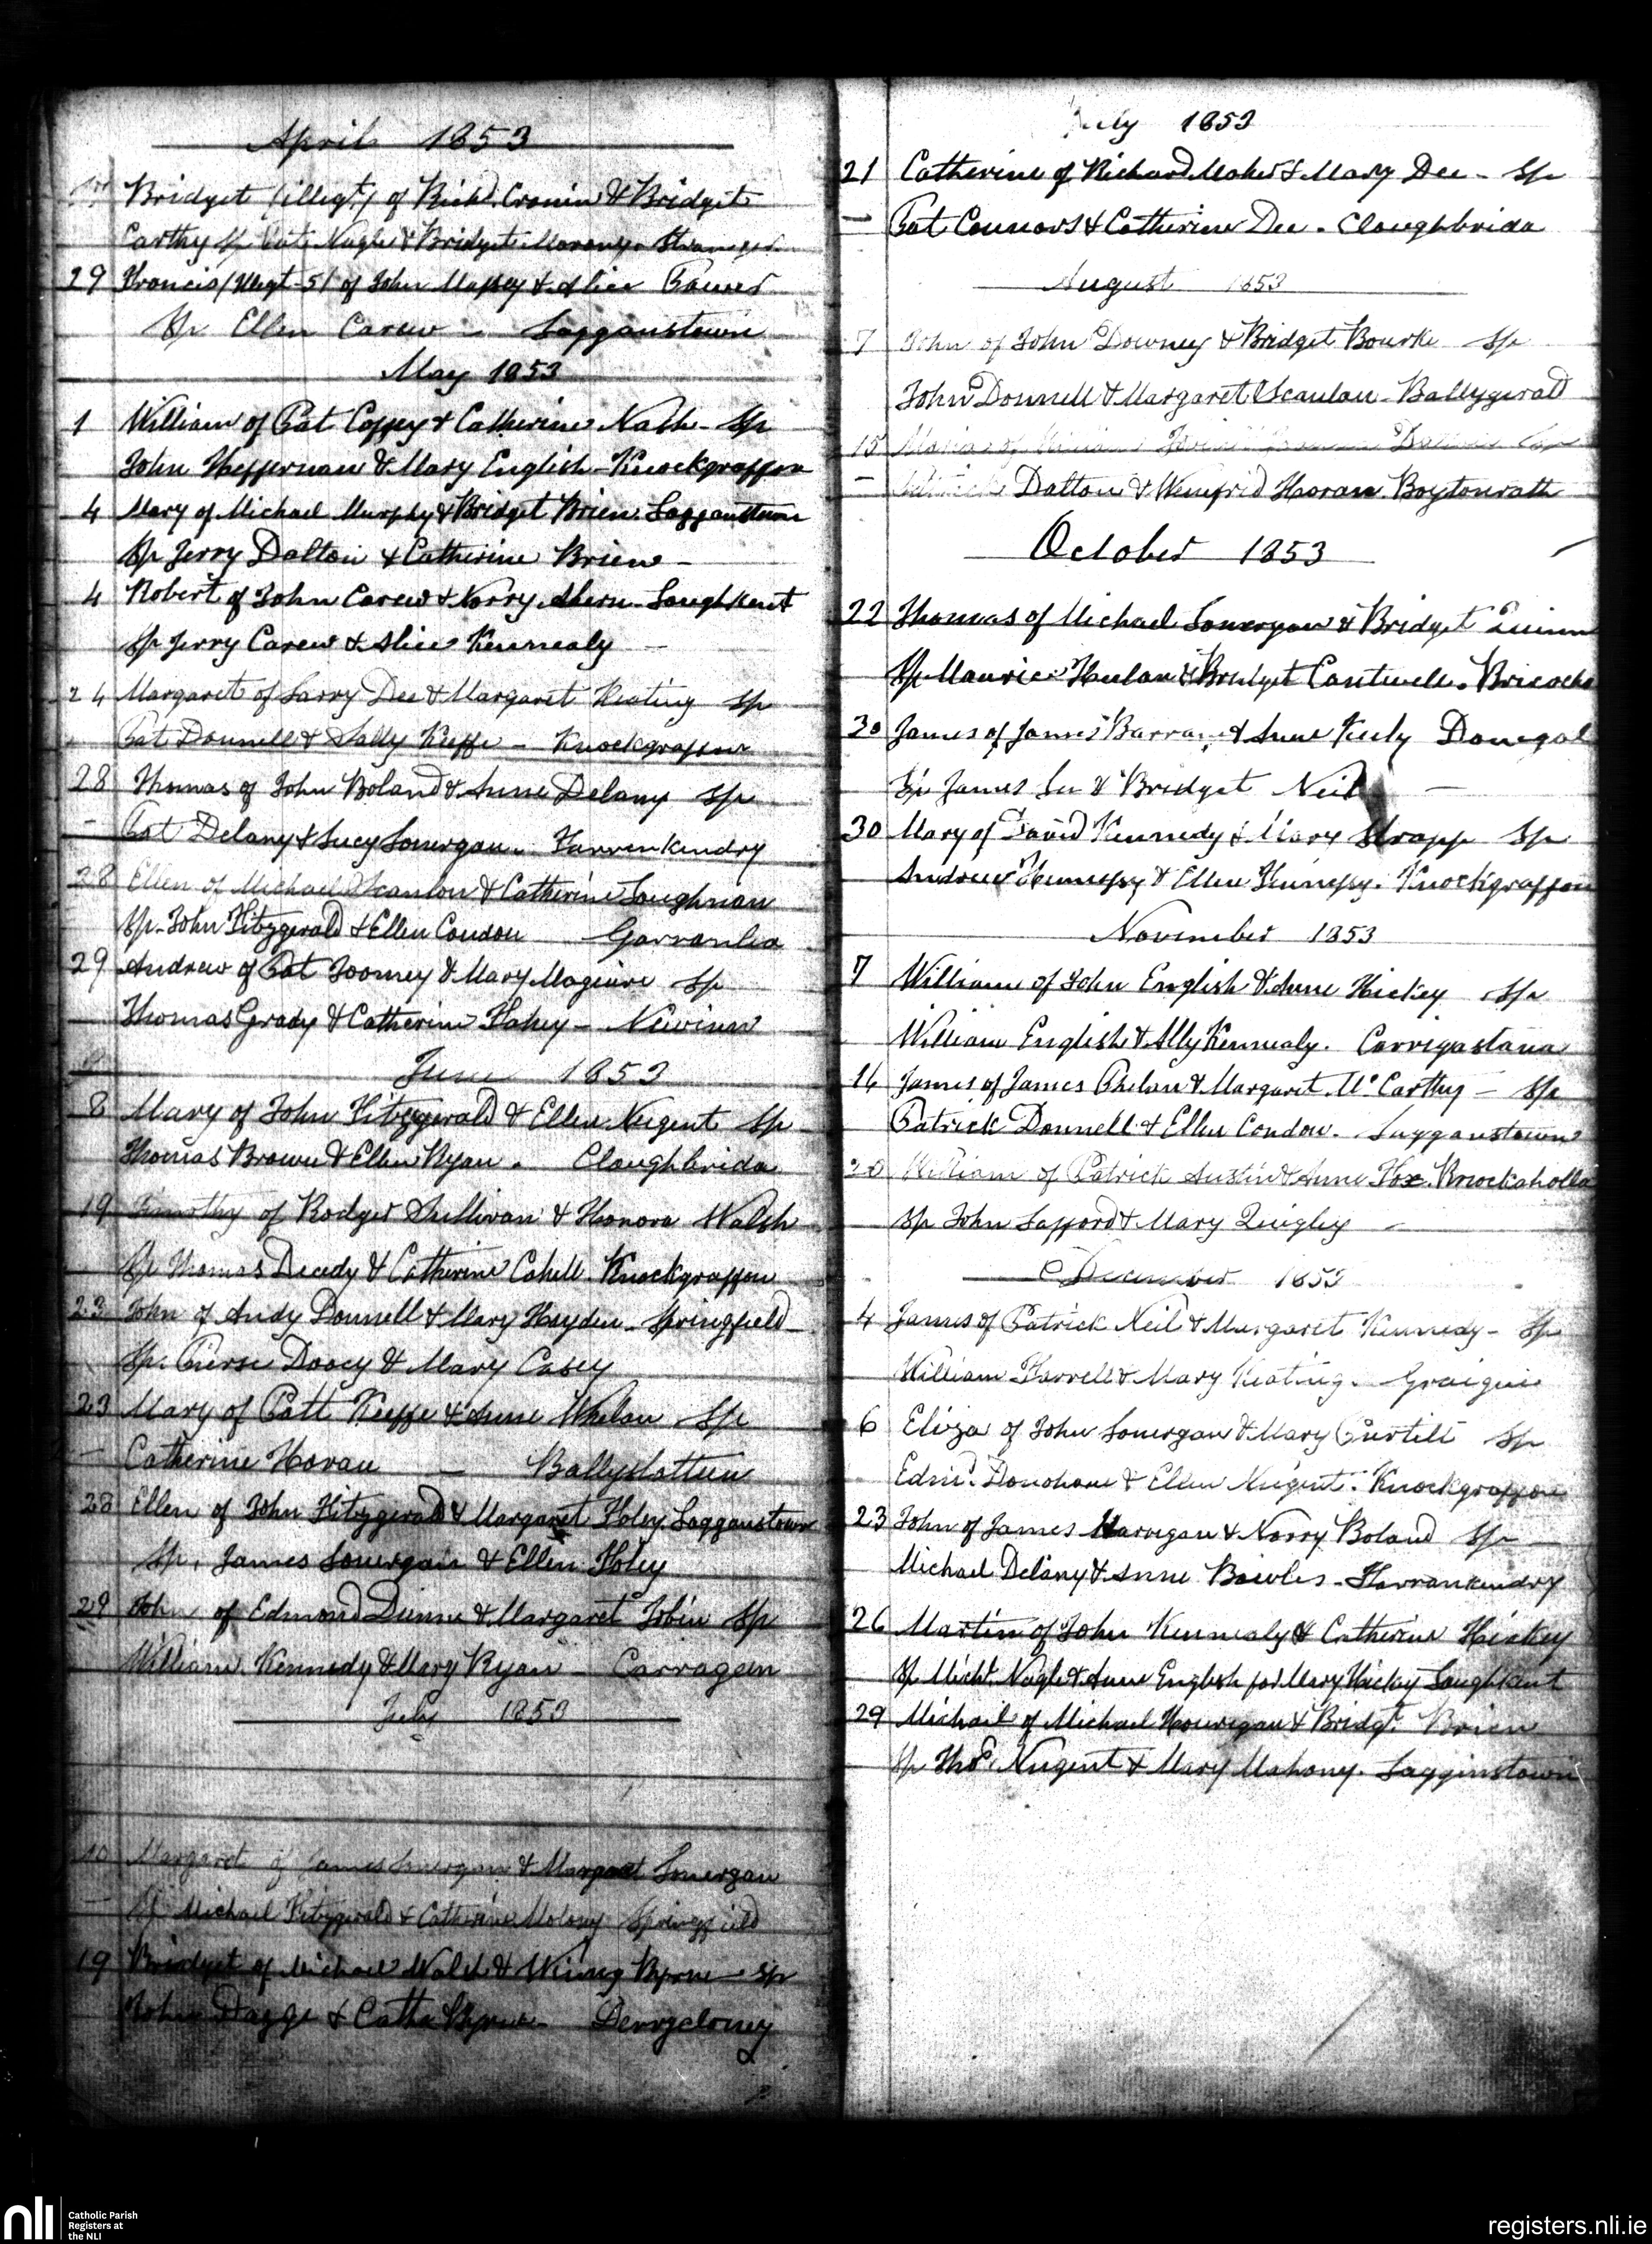 April 1853
Bridget (illegt.) of Richd. Cronin & Bridget
Carthy Sp Nagle & Bridget
29 Francis (illegt-5) of John Massey & Alice Power
Sp Ellen Carew - Logganstown
May 1853
1 William of Pat Coffey & Catherine Nash - Sp
John Heffernan & Mary English - Knockgraffon
4 Mary of Michael Murphy & Bridget Brien. Logganstown
Sp Jerry Dalton & Catherine Brien -
4 Robert of John Carew & Norry Ahern - Loughkent
Sp Jerry Carew & Alice Kennealy -
24 Margaret of Larry Dee & Margaret Keating Sp
Pat Donnell & Sally Keffe - Knockgraffon
28 Thomas of John Boland & Anne Delany Sp
- Pat Delany & Lucy Lonergan. Farrenkindry
28 Ellen of Michael Scanlon & Catherine Loughnan
Sp. John Fitzgerald & Ellen Condon Garranlea
29 Andrew of Pat Toomey & Mary Maguire Sp
Thomas Grady & Catherine Fahey - Newinn
June 1853
8 Mary of John Fitzgerald & Ellen Nugent Sp
Thomas Brown & Ellen Ryan. Cloughbrida
19 Timothy of Rodger Sullivan & Honora Walsh
Sp Thomas Deedy & Catherine Cahell Knockgraffon
23 John of Andy Donnell & Mary Hayden - Springfield
Sp. Pierse Doocy & Mary Casey
23 Mary of Patt Keeffe & Anne Whelan Sp
- Catherine Horan - Ballyslatteen
28 Ellen of John Fitzgerald & Margaret Foley Logganstown
Sp. James Lonergan & Ellen Foley
29 John of Edmond Dunne & Margaret Tobin Sp
William Kennedy & Mary Ryan - Carrageen
July 1853
10 Margaret of James Lonergan & Margaret Lonergan
- Sp Michael Fitzgerald & Catherine Molony Springfield
19 Bridget of Michael Walsh & Winny Byrne - Sp
John & Cathe Byrne - Derrycloney
July 1853
21 Catherine of Richard Maher & Mary Dee - Sp
- Pat Connors & Catherine Dee - Cloughbrida
August 1853
7 John of John Downey & Bridget Bourke Sp
John Donnell & Margaret Scanlan - Ballygerald
15
- Dalton & Winefrid Horan. Boytonrath
October 1853
22 Thomas of Michael Lonergan & Bridget Quinn
Sp Maurice & Bridget Cantwell.
30 James of James & Anne Keely Donegal
Sp James Lee & Bridget Neil -
30 Mary of David Kennedy & Mary Strapp Sp
Andrew Hennessy & Ellen Hennessy. Knockgraffon
November 1853
7 William of John English & Anne Hickey Sp
William English & Ally Kennealy. Carrigastana
14 James of James Phelan & Margaret McCarthy - Sp
Patrick Donnell & Ellen Condon. Logganstown
20 William of Patrick Austin & Anne Fox. Knockaholla
Sp John Lafford & Mary Quigley -
December 1853
4 James of Patrick Neil & Margaret Kennedy - Sp
William Farrell & Mary Keating. Graigue
6 Eliza of John Lonergan & Mary Sp
Edmd. Donohoue & Ellen Nugent. Knockgraffon
23 John of James Harrigan & Norry Boland Sp -
Michael Delany & Anne Bowles - Farrankindry
26 Martin of John Kennealy & Catherine Hickey
Sp Michl. Nagle & Anne English for Mary Hickey Loughkent
29 Michael of Michael Hourigan & Bridgt. Brien
Sp Thos. Nugent & Mary Mahony. Logginstown
nli
Catholic Parish
Registers at
the NLI
registers.nli.ie